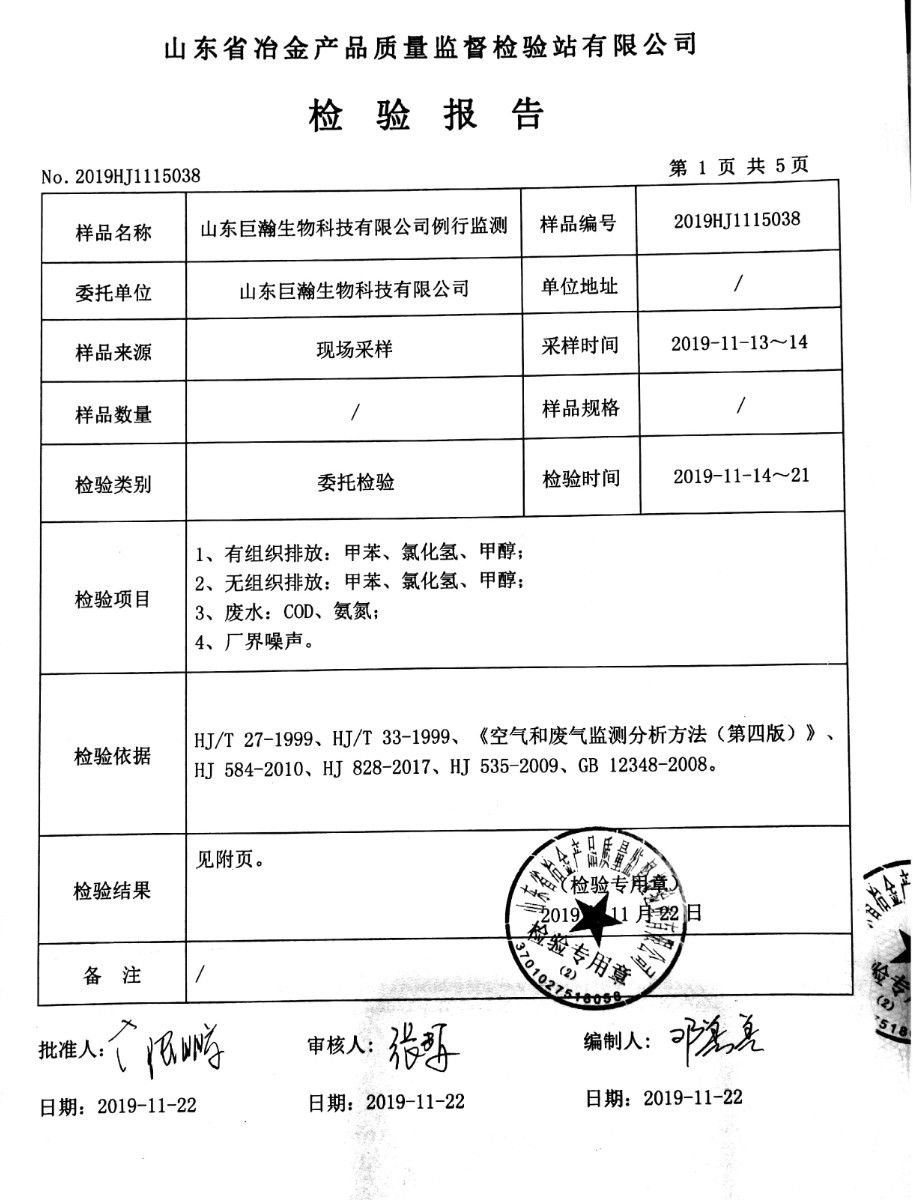 山东省冶金产品质量监督检验站有限公司
检 验 报 告
No.2019HJ1115038
第 1 页 共 5 页
样品名称 山东巨瀚生物科技有限公司例行监测 样品编号 2019HJ1115038
委托单位 山东巨瀚生物科技有限公司 单位地址 /
样品来源 现场采样 采样时间 2019-11-13～14
样品数量 / 样品规格 /
检验类别 委托检验 检验时间 2019-11-14～21
检验项目
1、有组织排放：甲苯、氯化氢、甲醇；
2、无组织排放：甲苯、氯化氢、甲醇；
3、废水：COD、氨氮；
4、厂界噪声。
检验依据
HJ/T 27-1999、HJ/T 33-1999、《空气和废气监测分析方法（第四版）》、
HJ 584-2010、HJ 828-2017、HJ 535-2009、GB 12348-2008。
检验结果
见附页。
（检验专用章）
2019年11月22日
山东省冶金产品质量监督检验站有限公司
检验专用章
(2)
备 注 /
批准人： 审核人： 编制人：
日期：2019-11-22 日期：2019-11-22 日期：2019-11-22